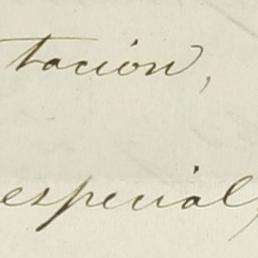 tacion,
especial,